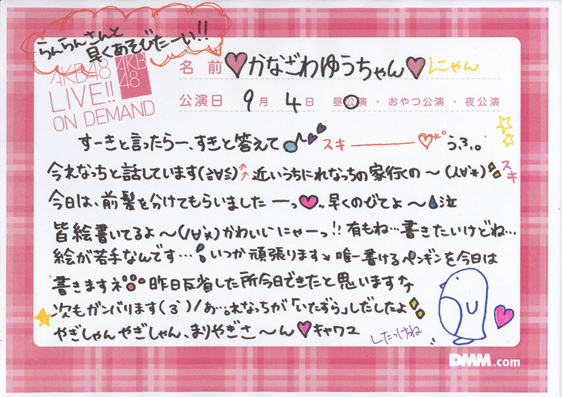 らんらんさんと
早くあそびたーい!!
AKB48
LIVE!!
ON DEMAND
AKB
48
名前 ♥かなざわゆうちゃん♥しにゃん
公演日 9月 4日 昼公演・おやつ公演・夜公演
すーきと言ったらー、すきと答えて♪ スキ ――― ♡*°う,3,。
今れなっちと話しています(≧∀≦)↑近いうちにれなっちの家行の〜(人∀*)スキ
今日は、前髪を分けてもらいましたーっ♥早くのびてよ〜泣
皆絵書いてるよ〜(ノ∀`*)かわいいにゃーっ!!有もね…書きたいけどね…
絵が苦手なんです…!いつか頑張ります↘唯一書けるペンギンを今日は
書きますネ 昨日反省した所今日できたと思います
次もガンバリます(3`)/あ…れなっちが「いたずら」しだしたよ
やぎしゃんやぎしゃん、まりやぎさ〜ん♥キャワユ
DMM.com